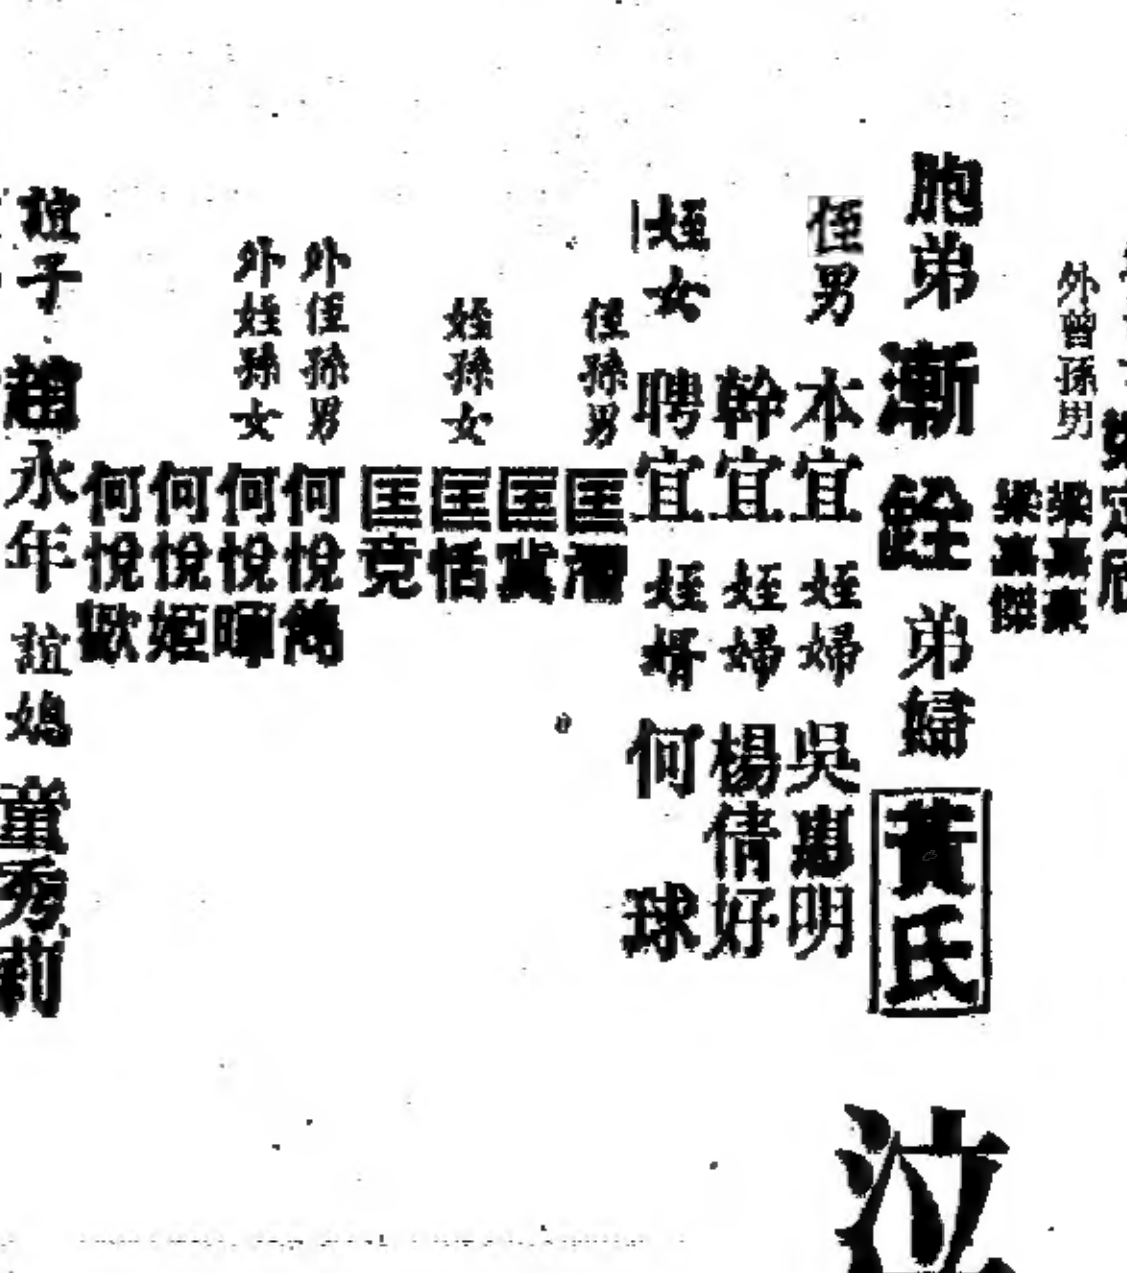 外曾孫男
梁嘉豪
梁嘉傑
胞弟 漸銓 弟婦 黃氏
泣
侄男 本宜 姪婦 吳惠明
幹宜 姪婦 楊倩好
姪女 聘宜 姪婿 何球
侄孫男 匡
匡冀
姪孫女 匡恬
匡竞
外侄孫男 何悅雋
外姪孫女 何悅暉
何悅姬
何悅歡
誼子 趙永年 誼媳 童秀莉